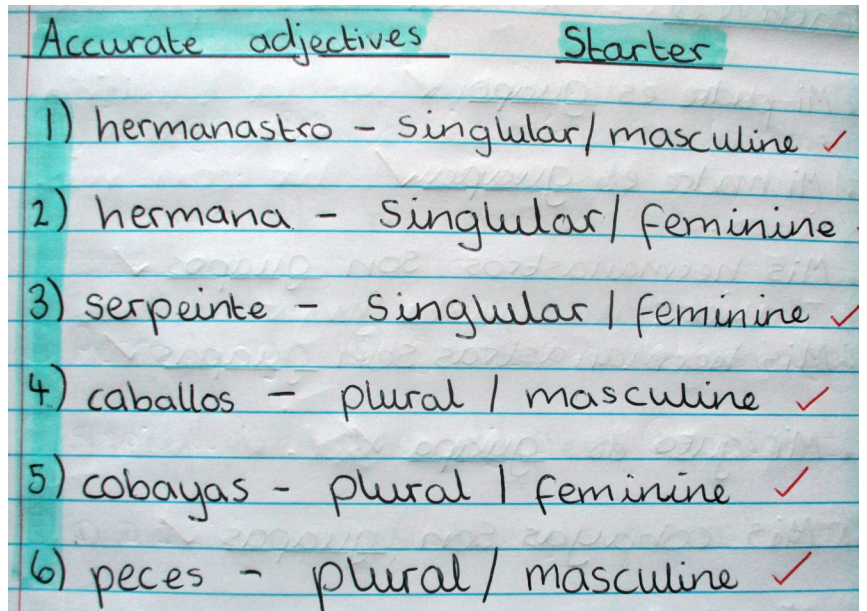 Accurate adjectives Starter
1) hermanastro - singlular/ masculine ✓
2) hermana - singlular/ feminine
3) serpeinte - singlular / feminine ✓
4) caballos - plural / masculine ✓
5) cobayas - plural / feminine ✓
6) peces - plural / masculine ✓